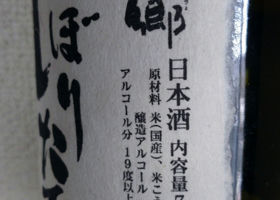 郷
ぼりたて
日本酒 内容量7
原材料 米(国産)、米こう
醸造アルコール
アルコール分 19度以上